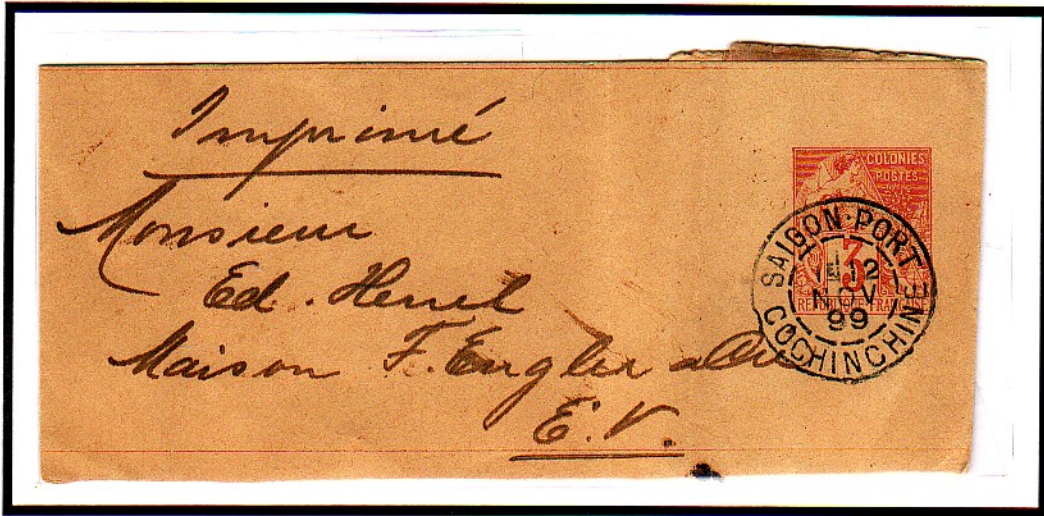 Imprimé
Monsieur
Ed. Henel
Maison F. Engler & Cie
E.V.
COLONIES
POSTES
3
REPUBLIQUE FRANÇAISE
SAIGON-PORT
12
NOV
99
COCHINCHINE